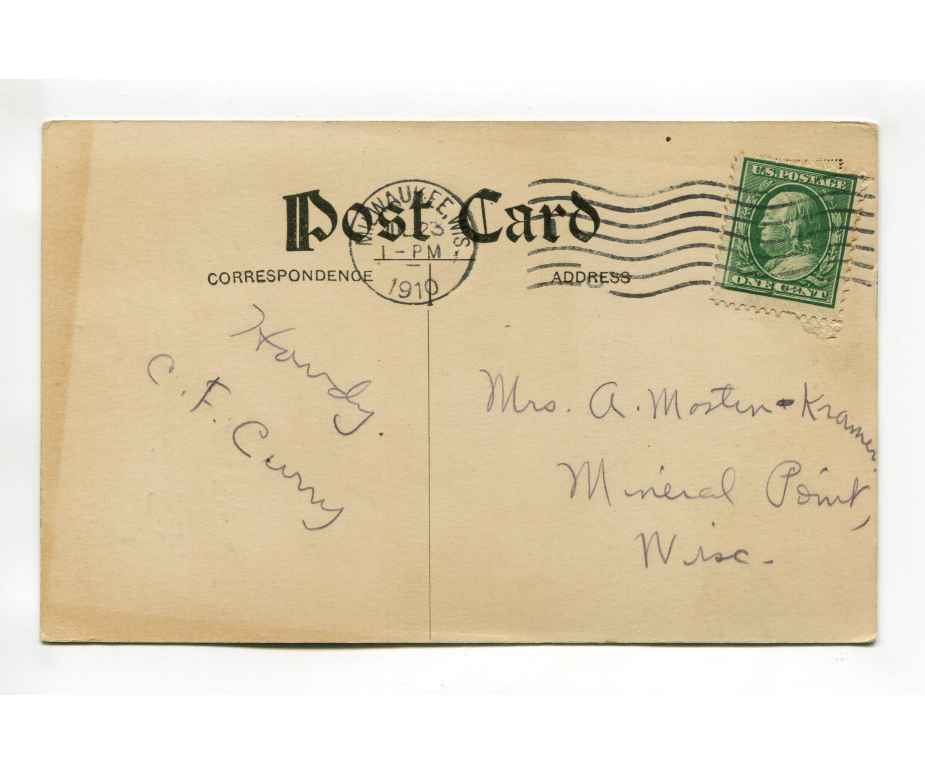 Post Card
MILWAUKEE, WIS.
23
1 - PM
1910
U.S. POSTAGE
ONE CENT
CORRESPONDENCE
ADDRESS
Howdy.
C. F. Curry
Mrs. A. Mosten - Kramer
Mineral Point,
Wisc.